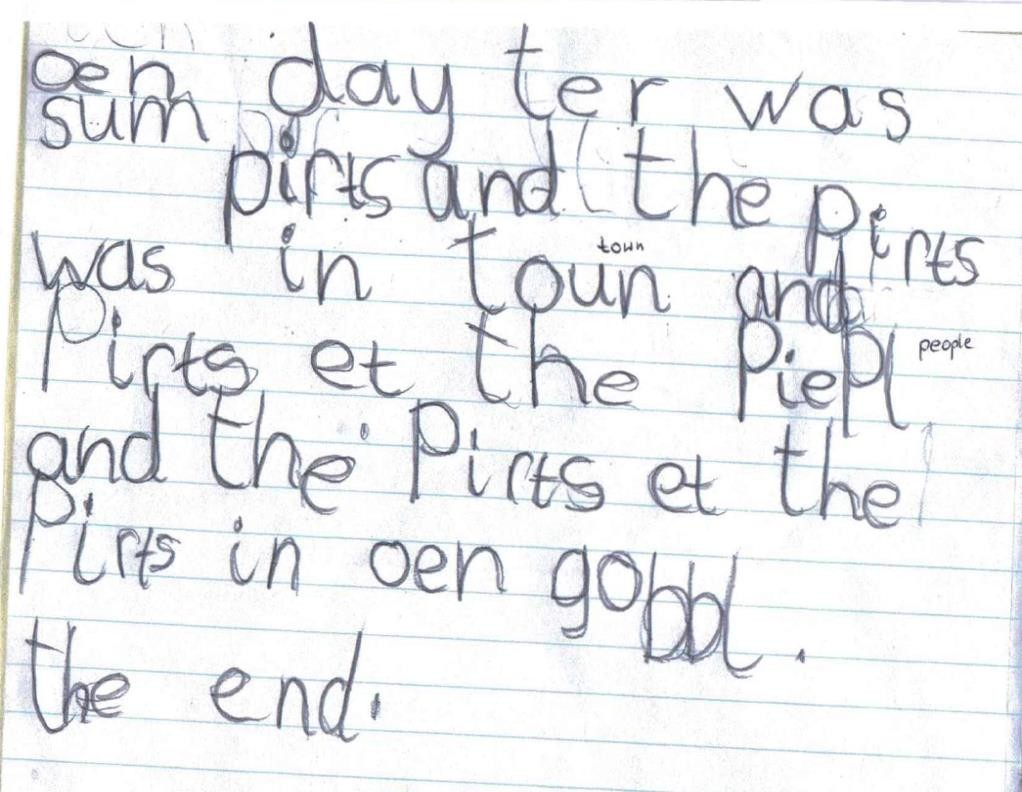 oen day ter was
sum
pirts and the pirts
was in toun town and
Pirts et the PiePl people
and the Pirts et the
Pirts in oen gobbl.
the end.